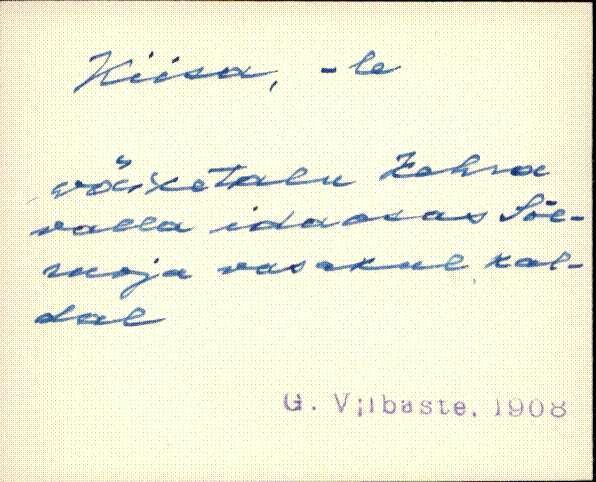 Kiisa, -le
väiketalu Kehra
valla idaosas Sõe-
moja vasakul kal-
dal
G. Vilbaste, 1908